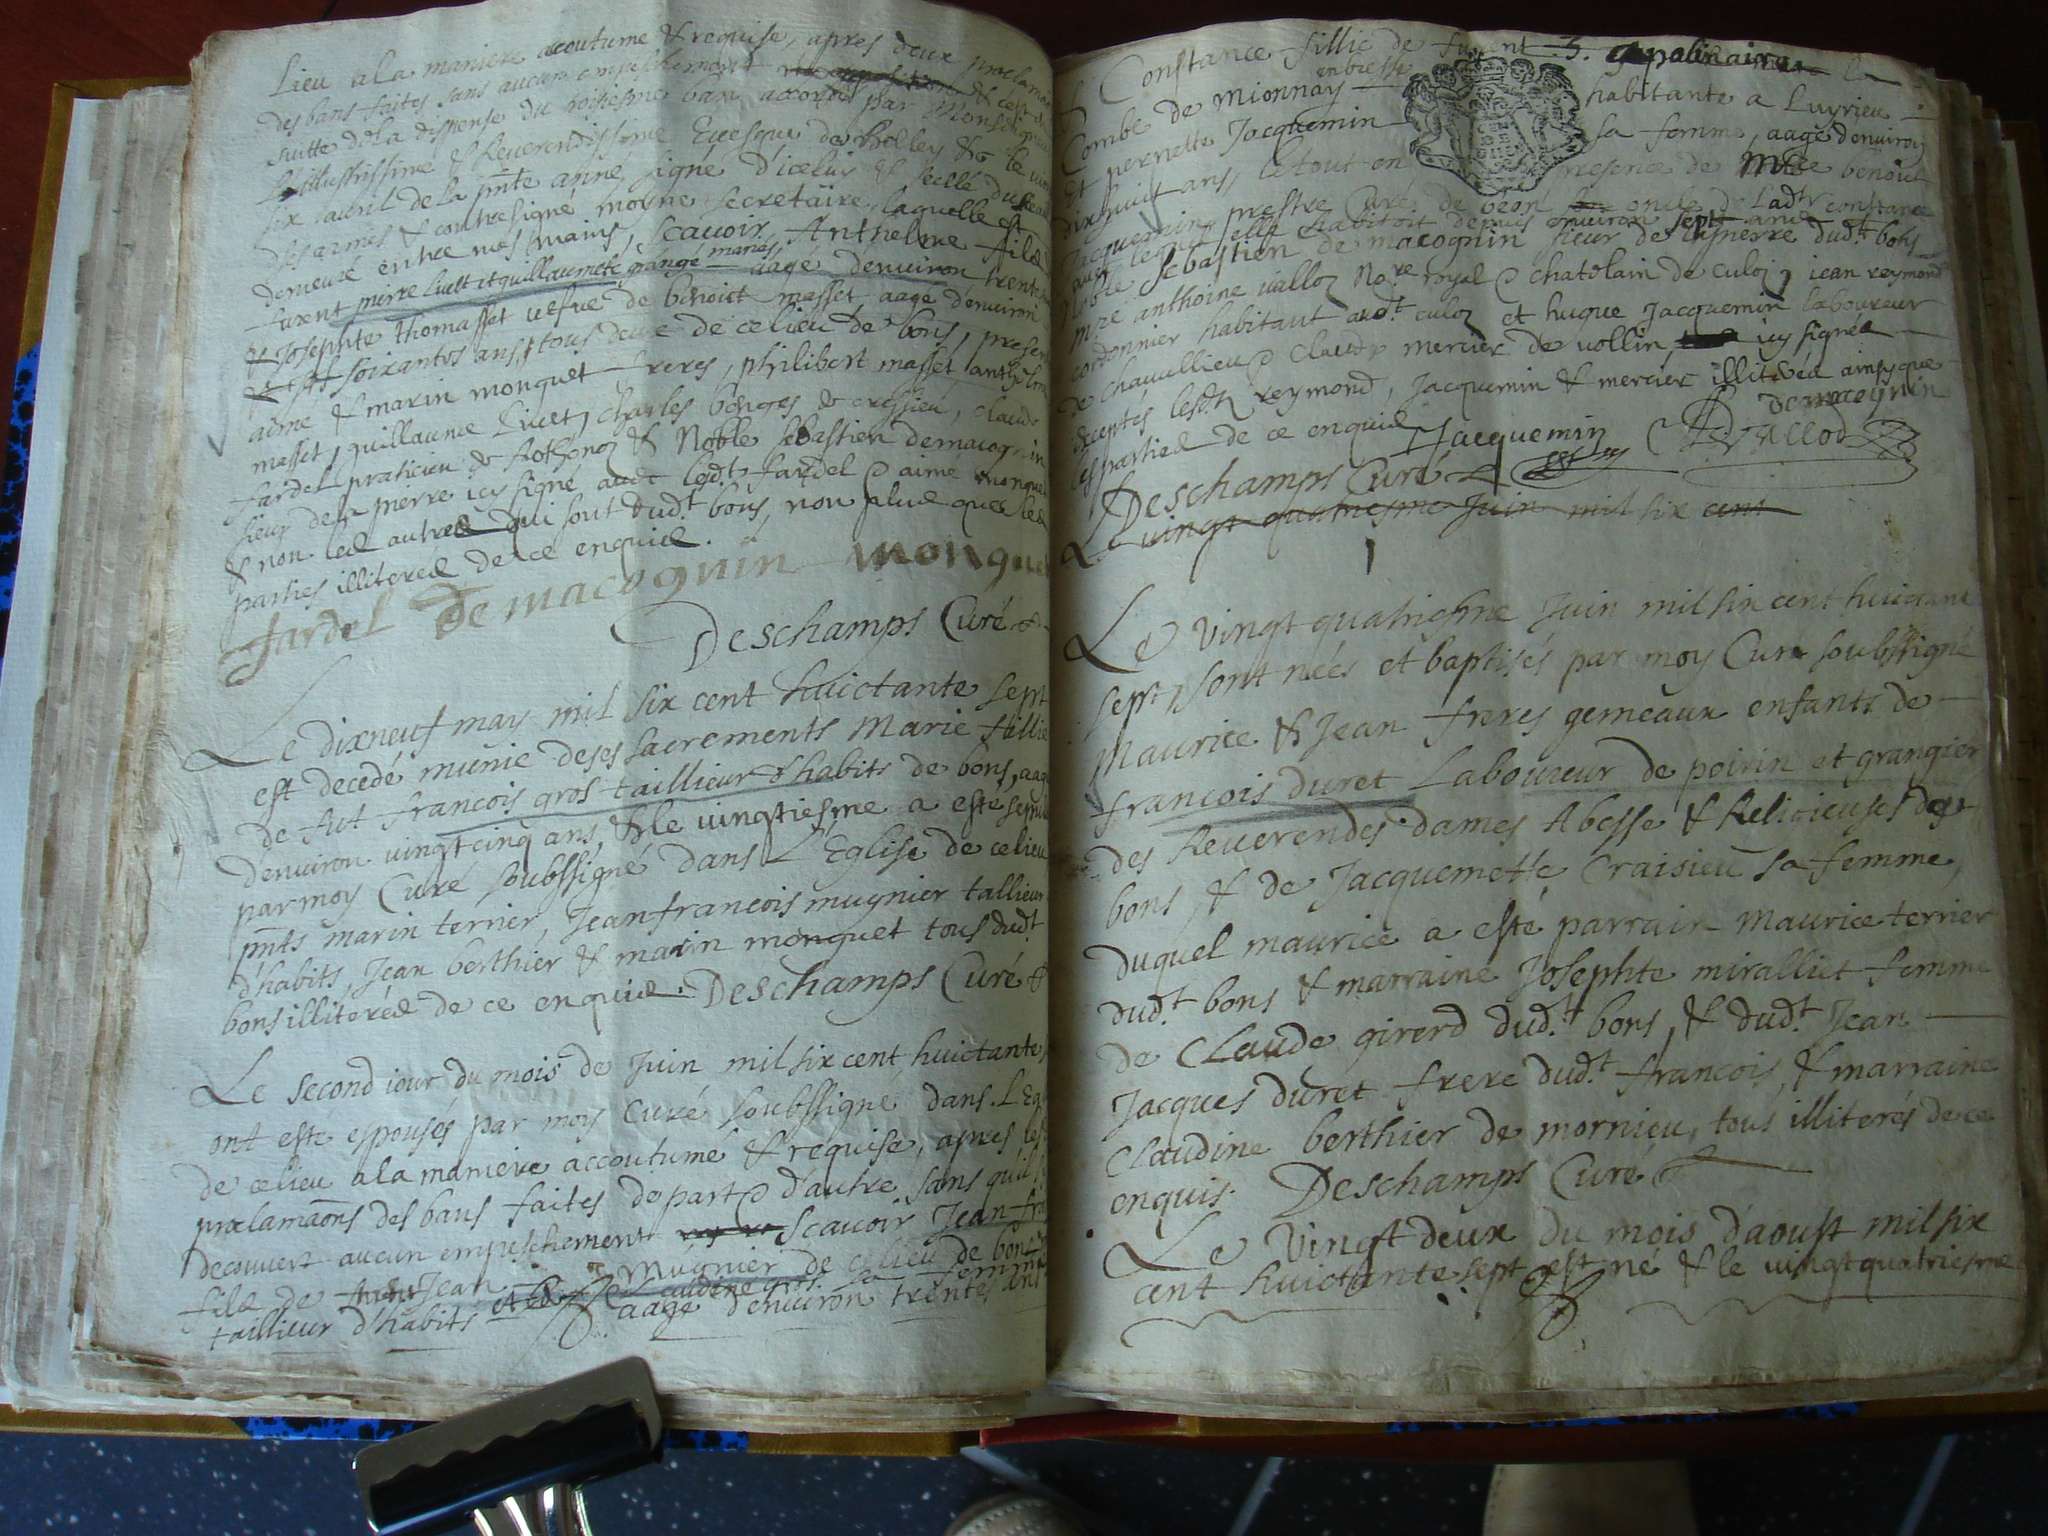 Lieu a la maniere accoutume & requise, apres deux proclama
des bans faites sans aucun empeschement & ce en
suitte de la dispense du troisiesme ban accordé par Monseigneur
L'illustrissime & Reverendissime Evesque de Belley le vingt
six avril de la pnte anné, signé d'icelui & scellé du sceau
des armes & contresigné morne secretaire, laquelle est
demeuré entre mes mains, scavoir Anthelme fils de
furent pierre Livet et guillaumete grange mariés aage denviron trente
& Josephte thomasset vefve de benoict masset aagé denviron
soixantes ans, tous deux de ce lieu de bons, presents
aimé & marin monquet freres, philibert masset anthelme
masset, guillaume Livet, charles borges de cressieu, claude
fardel praticien de Rothonod & Noble sebastien demacognin
sieur de la pierre icy signé avec led.t fardel & aimé monquet
& non les autres qui sont dud.t bons, non plus que les
parties illiteres de ce enquis.
fardel Demacognin monquet
Deschamps Curé
Le dixneuf may mil six cent huictante sept
est decedé munie de ses sacrements Marie fillie
de fut francois gros taillieur d'habits de bons, aagé
denviron vingtcinq ans, & le vingtiesme a esté sepulturé
par moy Curé soubssigné dans L'Eglise de ce lieu
pnts marin terrier, Jeanfrancois mugnier tallieur
d'habits, Jean berthier & marin monquet tous dud.t
bons illiterés de ce enquis. Deschamps Curé
Le second jour du mois de Juin mil six cent huictante
ont esté espousés par moy curé soubssigné dans L'Eg
de ce lieu a la maniere accoutumé & requise, apres les
proclamaons des bans faites de part & d'autre sans qu'il
decouvert aucun empeschement scavoir Jean fra
fils de Jean Mugnier de ce lieu de bons
taillieur d'habits & de claudine gros sa femme
aagé denviron trentes ans
Constance fillie de furent apolinaire la
Combe de Mionnay en bresse habitante a Luyrieu
Et pernette Jacquemin sa femme, aagé denviron
dixhuict ans, le tout en presence de M.re benoict
Jacquemin prestre Curé de beon oncle de lad.t constance
avec lequel elle habitoit depuis environ sept ans
noble sebastien de macognin sieur de la pierre dud.t bons
m.re anthoine vallod No.re royal & chatelain de culoz, jean reymond
cordonnier habitant aud.t culoz et hugue Jacquemin laboureur
de chavullieu & claude mercier de vollin, icy signés
exceptés lesd.ts reymond, Jacquemin & mercier illiterés ainsy que
les parties de ce enquis Demacognin
Jacquemin Vallod
Deschamps Curé
Le vingt quatriesme Juin mil six cent
Le vingt quatriesme Juin mil six cent huictante
sept, sont nées et baptisés par moy Curé soubssigné
Maurice & Jean freres gemeaux enfants de
francois duret Laboureur de poirin et grangier
des Reverendes dames Abesse & Relicieuses de
bons & de Jacquemette Craisieu sa femme,
duquel maurice a esté parrain Maurice terrier
dud.t bons & marraine Josephte miralliet femme
de Claude girerd dud.t bons, & dud.t Jean
Jacques duret frere dud.t francois, & marraine
Claudine berthier de mornieu, tous illiterés de ce
enquis. Deschamps Curé
Le Vingt deux du mois d'aoust mil six
cent huictante sept est né & le vingt quatriesme